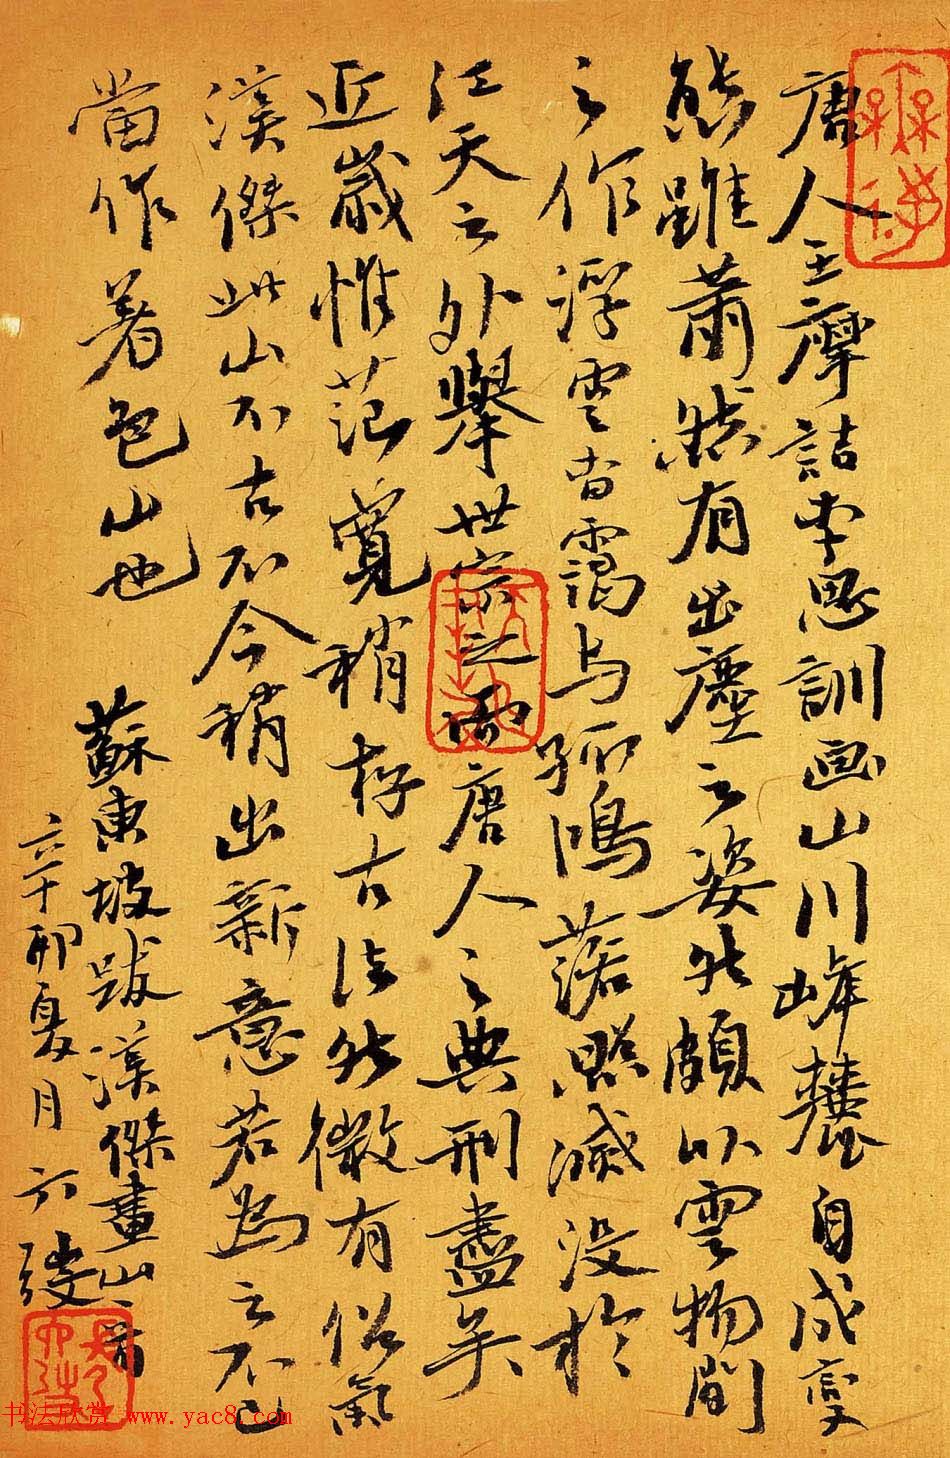 唐人王摩詰李思訓画山川峰麓自成変
態雖蕭然有出塵之姿然頗以雲物間
之作浮雲杳靄与孤鴻落照滅没於
江天之外舉世宗之而唐人之典刑盡矣
近歲惟范寬稍存古法然微有俗氣
漢傑此山不古不今稍出新意若為之不已
當作著色山也
蘇東坡跋漢傑畫山
卯夏月六
书法欣赏 www.yac8.com